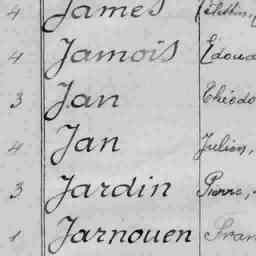 4 James
4 Jamois Édoua
3 Jan Théodo
4 Jan Julien,
3 Jardin Pierre,
1 Jarnouen Fran